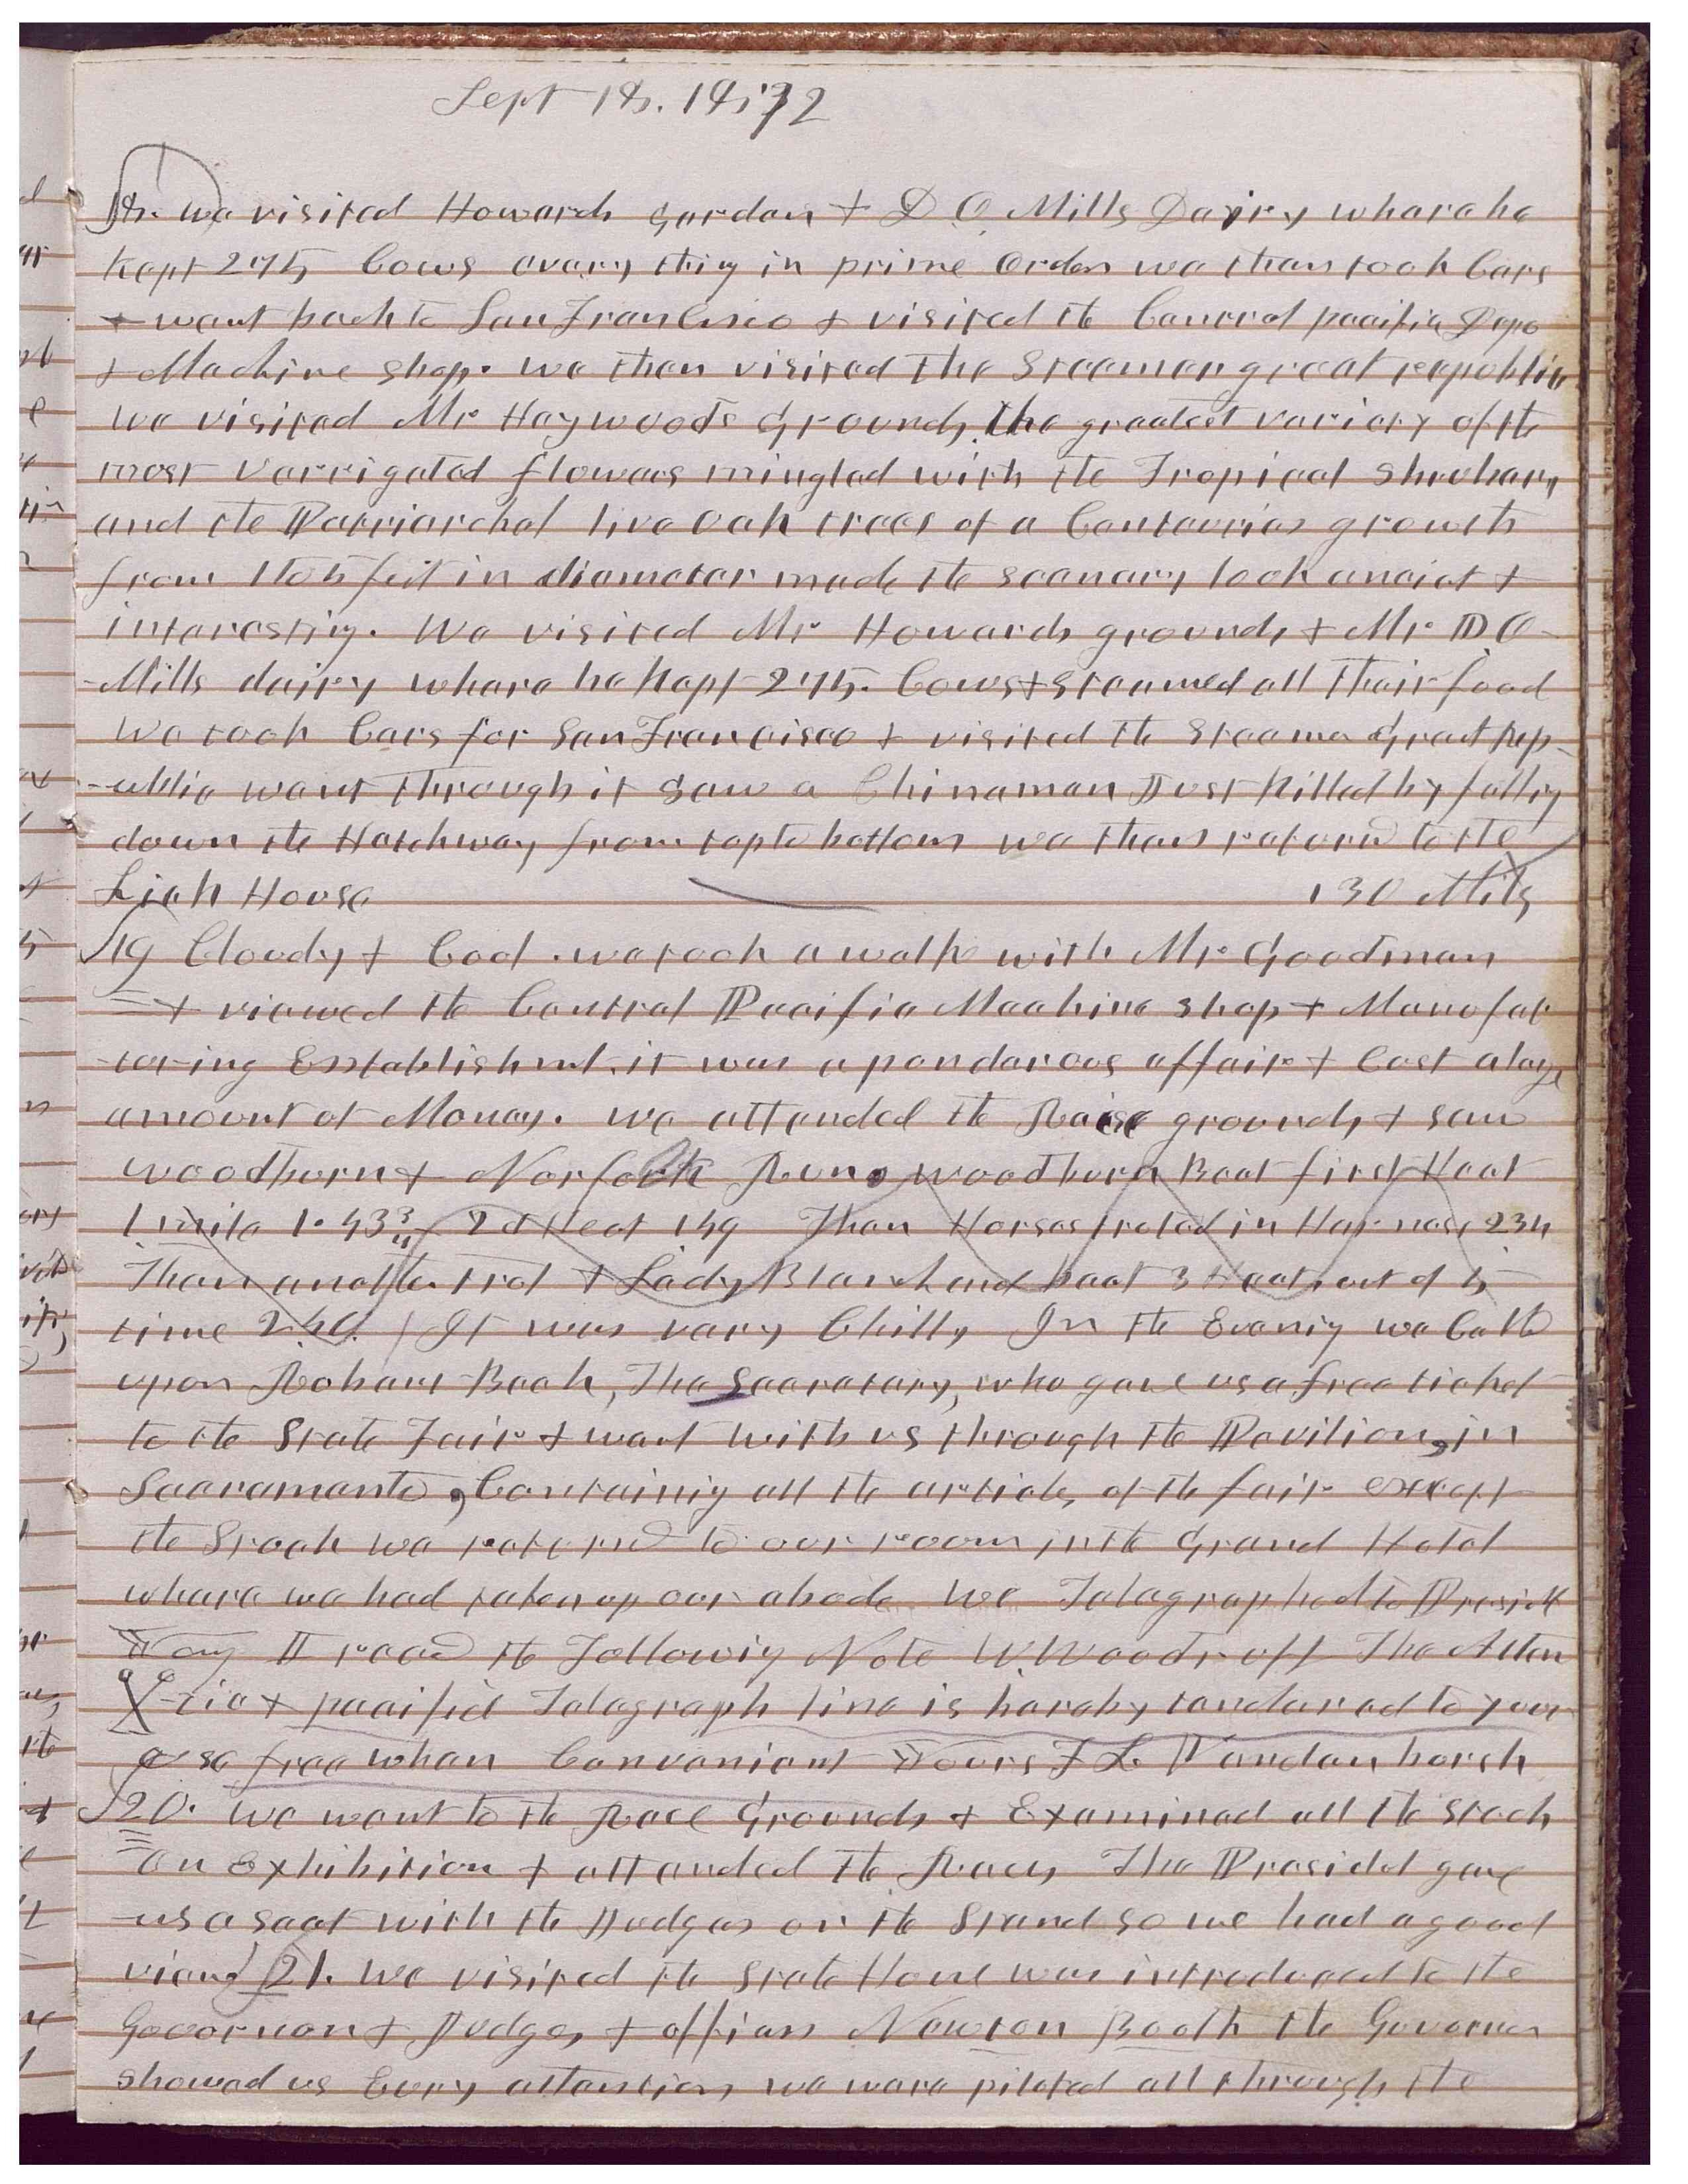 Sept 18. 1872
18. we visited Howards garden & D. O. Mills Dairy whare he
kept 275 Cows evary thing in prime order we then took Cars
& went back to San Francisco & visited the Central pacific Depo
& Machine shop. we then visited the Steamer great repoblic
we visited Mr Haywoods Grounds. the greatest variety of the
most varrigated flowers mingled with the Tropical shrubery
and the Patriarchal live oak trees of a Centauries growth
from 1 to 5 feet in diameter made the scenary look anciet &
interesting. We visited Mr Howards grounds & Mr D O
Mills dairy whare he kept 275. Cows & steamed all their food
We took Cars for San Francisco & visited the Steamer Great Rep-
-ublic went through it saw a Chinaman Just killed by falling
down the Hatchway from top to bottom we then returnd to the
Lick House 130 Miles
19 Cloudy & Cool. we took a walk with Mr Goodman
& viewed the Central Pacific Machine shop & Manufac
-toring Establishmt. it was a ponderous affair & Cost a large
amount of Money. we attended the Raise grounds & saw
Woodburn & Norfolk Run. Woodburn Beat first Heat
1 mile 1.43¾ 2d Heat 149 Then Horses troted in Harness 234
Then another trot & Lady Blanchard beat 3 Heats out of 5
time 2.49. It was vary Chilly In the Evening we Calld
upon Robert Beck, The Secretary, who gave us a free ticket
to the State Fair & went with us through the Pavilion, in
Sacramento, Containing all the articles of the fair except
the Stock we returnd to our room in the Grand Hotel
whare we had taken up our abode We Telegraphed to Presidt
Young I recd the Following Note W. Woodruff The Atlan
-tic & pacific Telegraph line is hereby tendered to your
use free when Convenient Yours F L Vandenburgh
20. we went to the Race Grounds & Examined all the stock
on Exhibition & attended the Races The Presidet gave
us a seat with the Judges on the Stand so we had a good
view 21. We visited the State House was introduced to the
Govornor & Judges & officers Newton Booth the Governor
showed us Every attention we ware piloted all through the